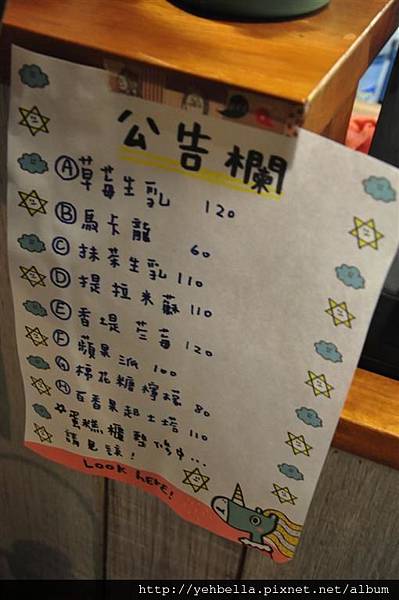 公告欄
Ⓐ草莓生乳 120
Ⓑ馬卡龍 60
Ⓒ抹茶生乳 110
Ⓓ提拉米蘇 110
Ⓔ香堤三莓 120
Ⓕ蘋果派 100
Ⓖ棉花糖檸檬 80
Ⓗ百香果起士塔 110
☆蛋糕櫃整修中...
請見諒!
LOOK HERE!
http://yehbella.pixnet.net/album